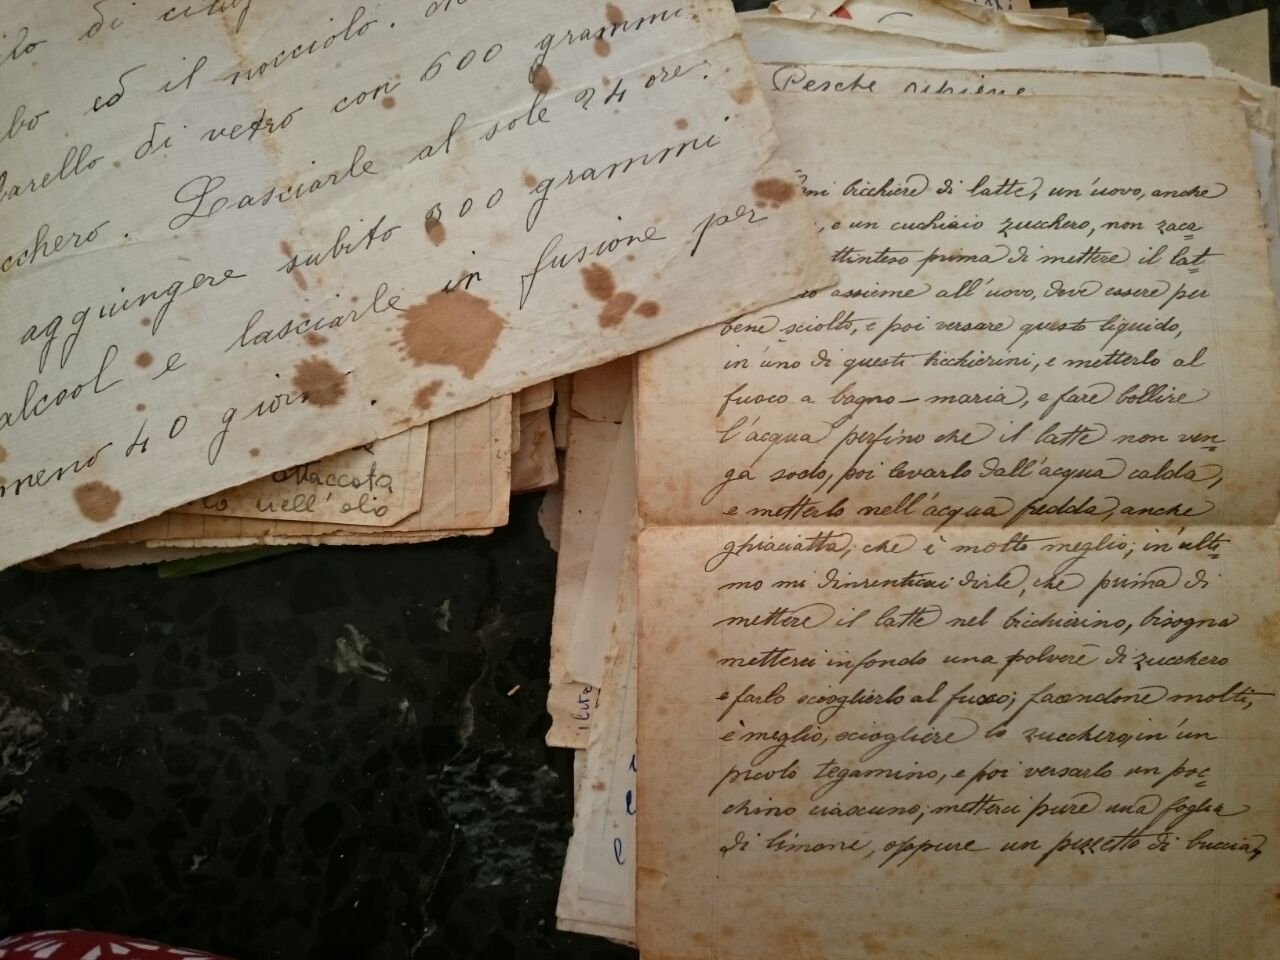 ilo di
bo ed il nocciolo.
arello di vetro con 600 grammi
cchero. Lasciarle al sole 24 ore.
aggiungere subito 300 grammi
alcool e lasciarle in fusione per
meno 40 giorni.
attaccata
lo nell'olio
Pesche ripiene
ni bicchiere di latte, un'uovo, anche
, e un cuchiaio zucchero, non zace=
ttinteso prima di mettere il lat=
to assieme all'uovo, deve essere per
bene sciolto, e poi versare questo liquido,
in uno di questi bicchierini, e metterlo al
fuoco a bagno-maria, e fare bollire
l'acqua perfino che il latte non ven=
ga sodo, poi levarlo dall'acqua calda,
e metterlo nell'acqua fredda, anche
ghiaciatta; che è molto meglio; in ulti=
mo mi dinrenticai dirle, che prima di
mettere il latte nel bichierino, bisogna
metterci infondo una polvere di zucchero
e farlo scioglierlo al fuoco; facendone molti,
è meglio, sciogliere lo zucchero in un
picolo tegamino, e poi versarlo un poc=
chino ciascuno; metterci pure una foglia
di limone, oppure un pezzetto di buccia,